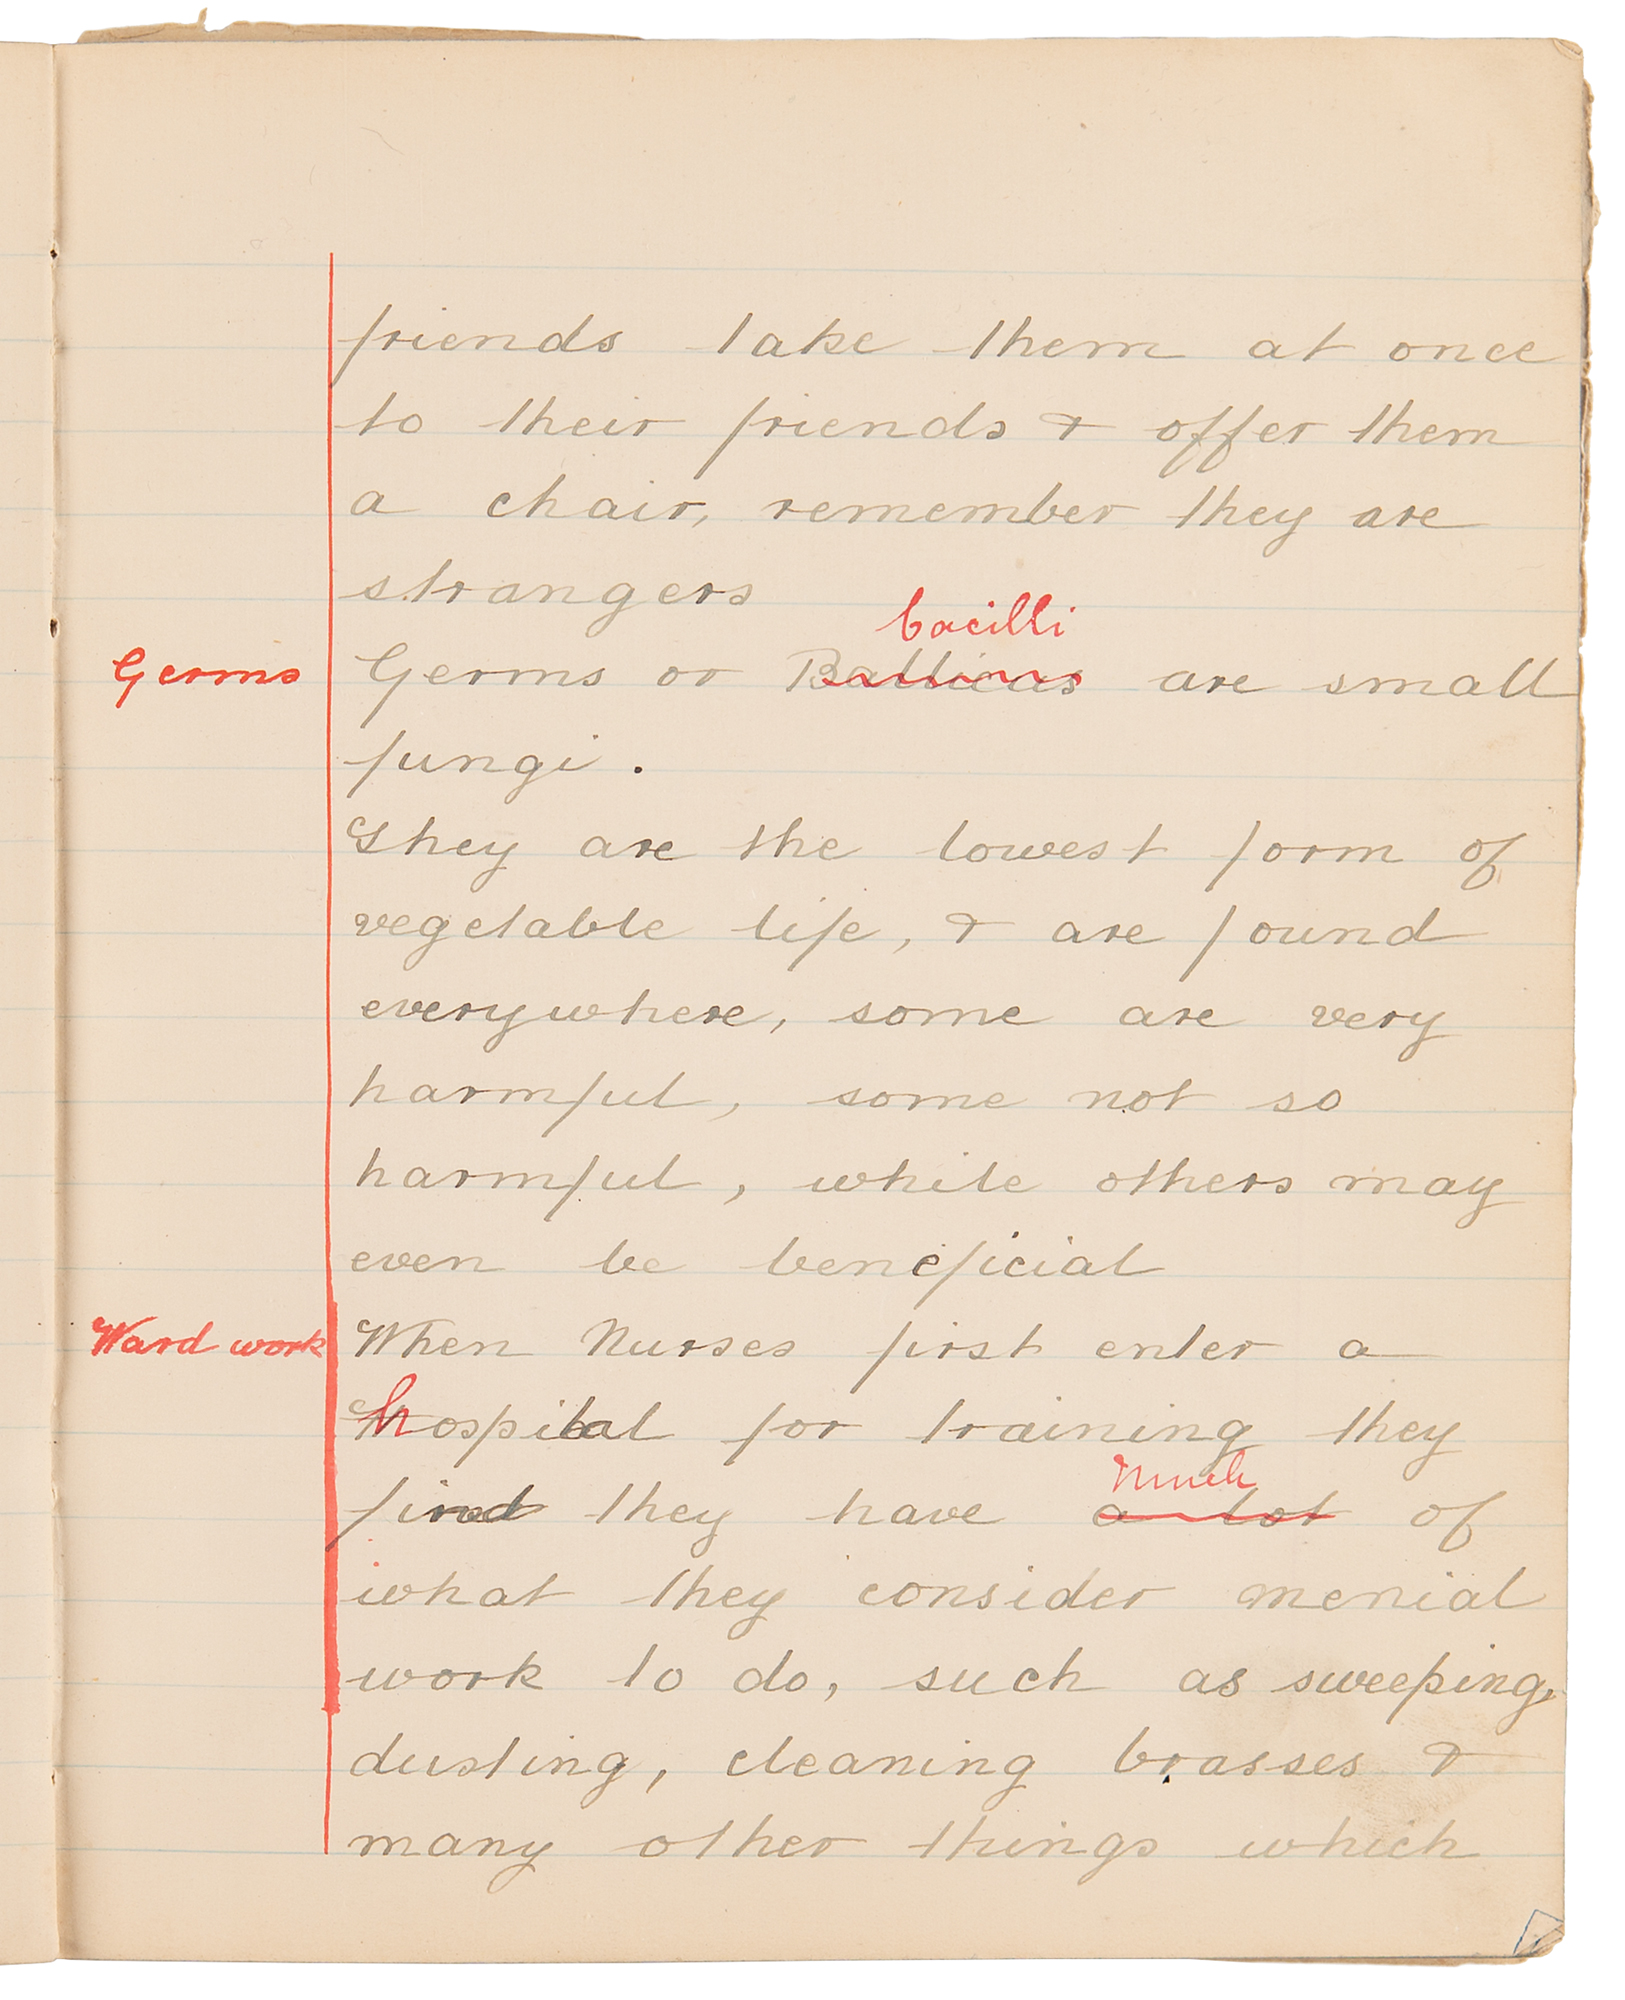 friends take them at once
to their friends & offer them
a chair, remember they are
strangers
bacilli
Germs Germs or are small
fungi.
They are the lowest form of
vegetable life, & are found
everywhere, some are very
harmful, some not so
harmful, while others may
even be beneficial
Ward work When Nurses first enter a
hospital for training they
much
find they have a lot of
what they consider menial
work to do, such as sweeping,
dusting, cleaning brasses &
many other things which